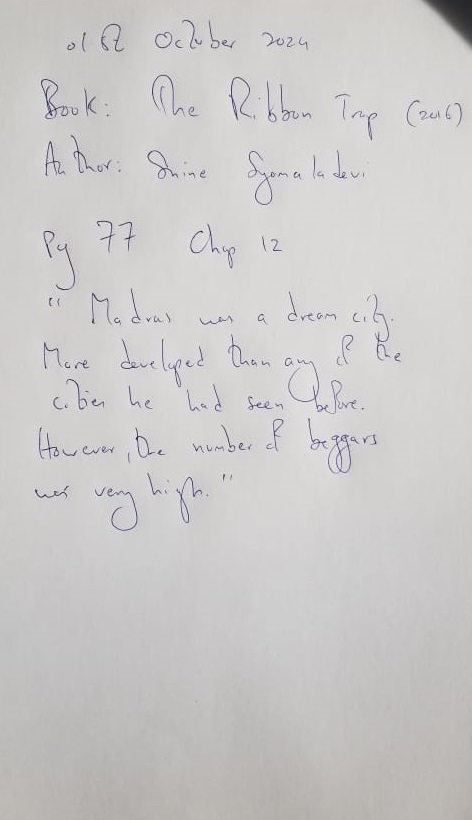 01st October 2024
Book: The Ribbon Trap (2016)
Author: Shine Syamaladevi
Pg 77 Chap 12
" Madras was a dream city.
More developed than any of the
cities he had seen before.
However, the number of beggars
was very high."